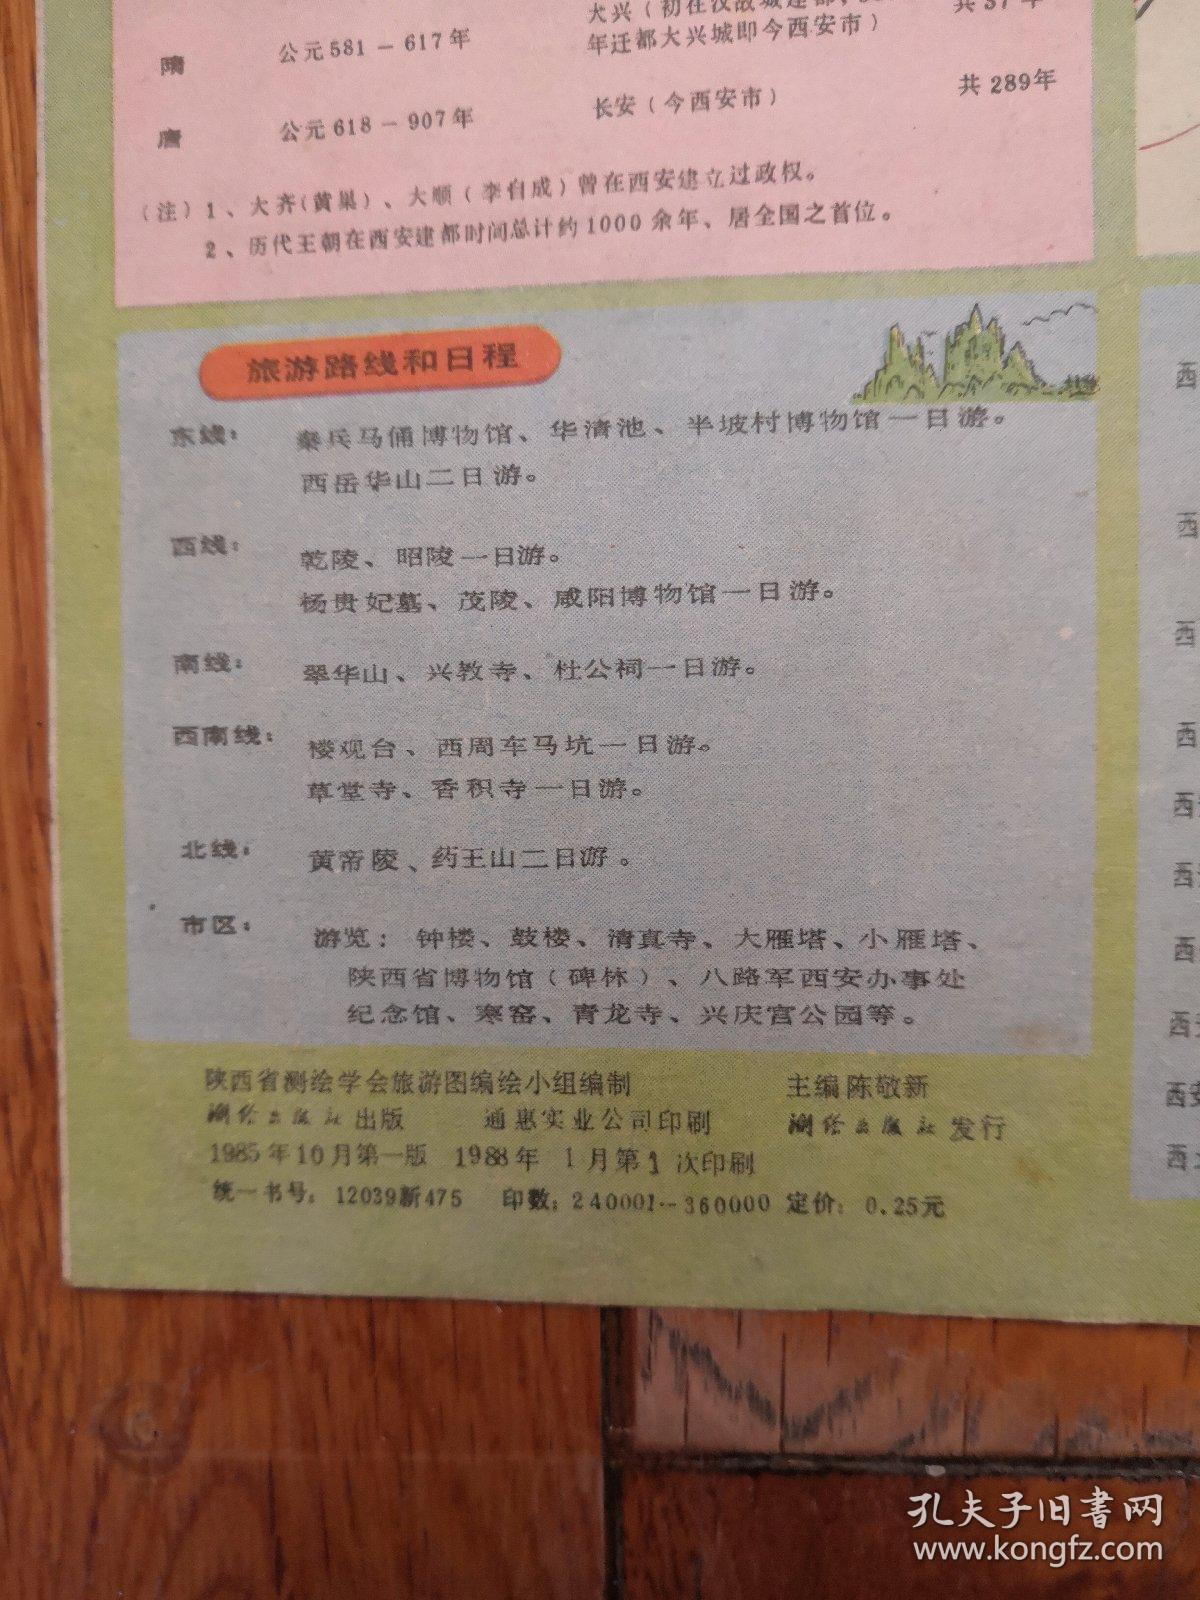 大兴（初在汉故城建都，
共37年
隋
公元581－617年
年迁都大兴城即今西安市）
唐
公元618－907年
长安（今西安市）
共 289年
（注）1、大齐(黄巢)、大顺（李自成）曾在西安建立过政权。
2、历代王朝在西安建都时间总计约1000余年、居全国之首位。
旅游路线和日程
东线：
秦兵马俑博物馆、华清池、半坡村博物馆一日游。
西岳华山二日游。
西线：
乾陵、昭陵一日游。
杨贵妃墓、茂陵、咸阳博物馆一日游。
南线：
翠华山、兴教寺、杜公祠一日游。
西南线：
楼观台、西周车马坑一日游。
草堂寺、香积寺一日游。
北线：
黄帝陵、药王山二日游。
市区：
游览：钟楼、鼓楼、清真寺、大雁塔、小雁塔、
陕西省博物馆（碑林）、八路军西安办事处
纪念馆、寒窑、青龙寺、兴庆宫公园等。
陕西省测绘学会旅游图编绘小组编制
主编 陈敬新
测绘出版社 出版
通惠实业公司印刷
测绘出版社 发行
1985年10月第一版 1988年 1月第1次印刷
统一书号：12039新475 印数：240001--360000 定价：0.25元
西
西
西
西
西
西
西
西安
西
孔夫子旧书网
www.kongfz.com